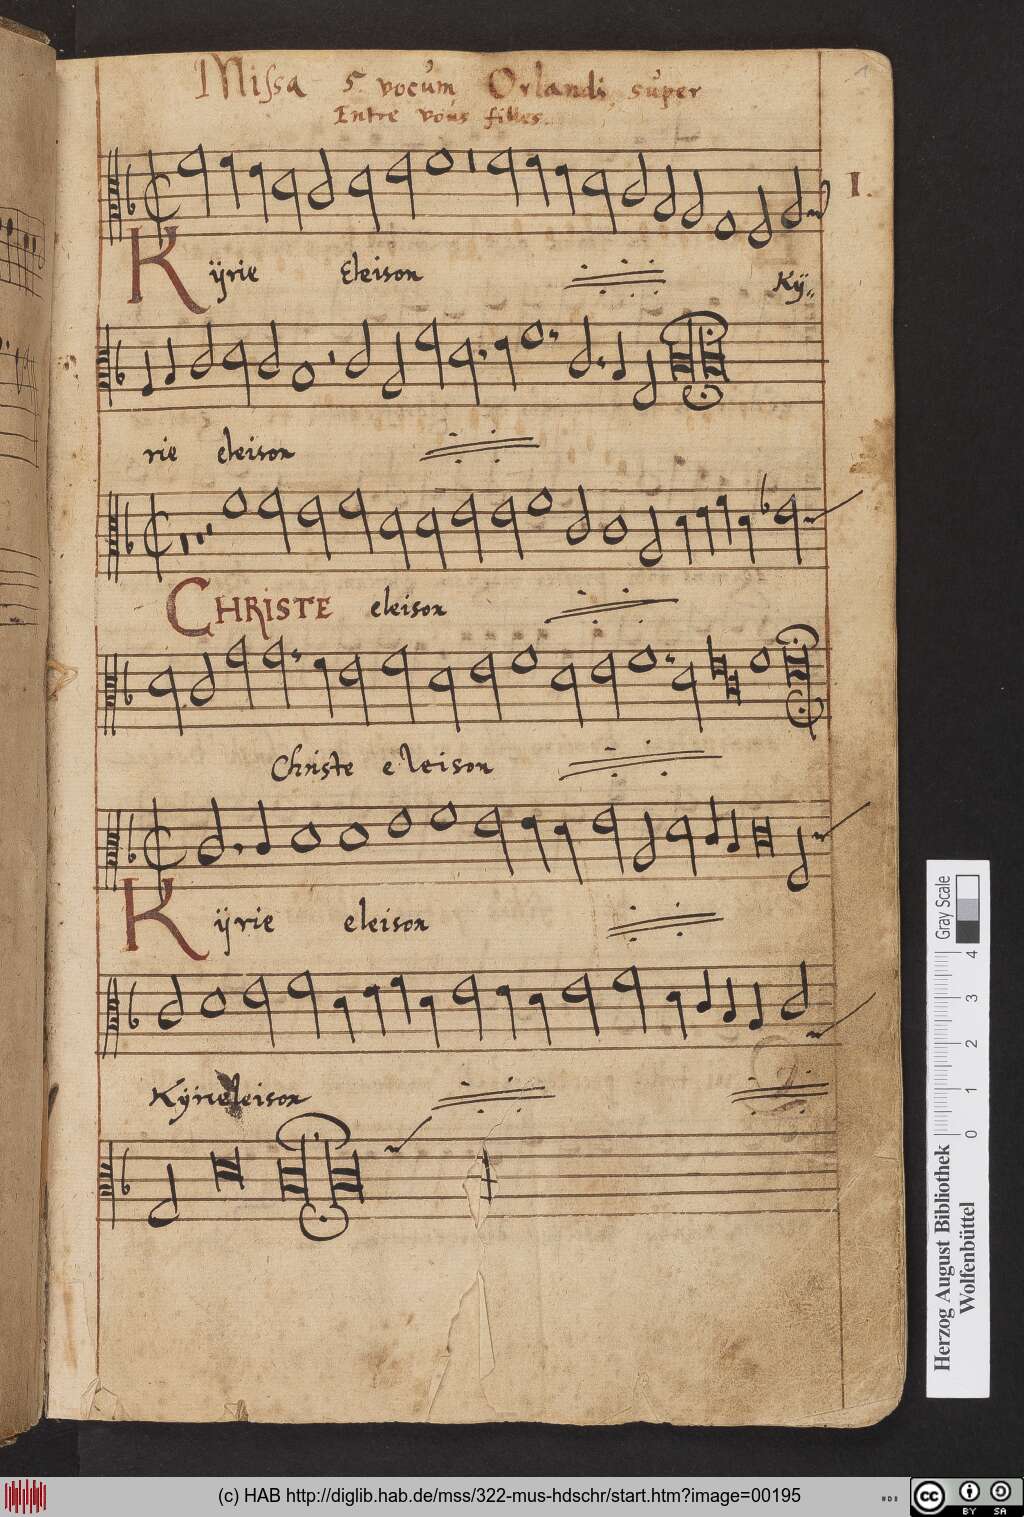 Missa 5. vocum Orlandi super
Entre vous filles.
1
I.
Kÿrie Eleison Kÿ„
rie eleison
CHRISTE eleison
Christe eleison
Kÿrie eleison
Kÿrieeleison
Gray Scale
0 1 2 3 4
Herzog August Bibliothek
Wolfenbüttel
(c) HAB http://diglib.hab.de/mss/322-mus-hdschr/start.htm?image=00195
cc BY SA